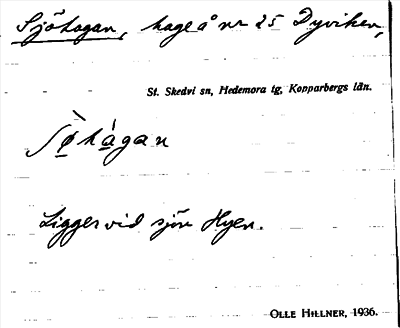 Sjöhagan, hage å nr 25 Dyviken,
St. Skedvi sn, Hedemora tg, Kopparbergs län.
ʃø̀hágan
Ligger vid sjön Hyen.
OLLE HILLNER, 1936.